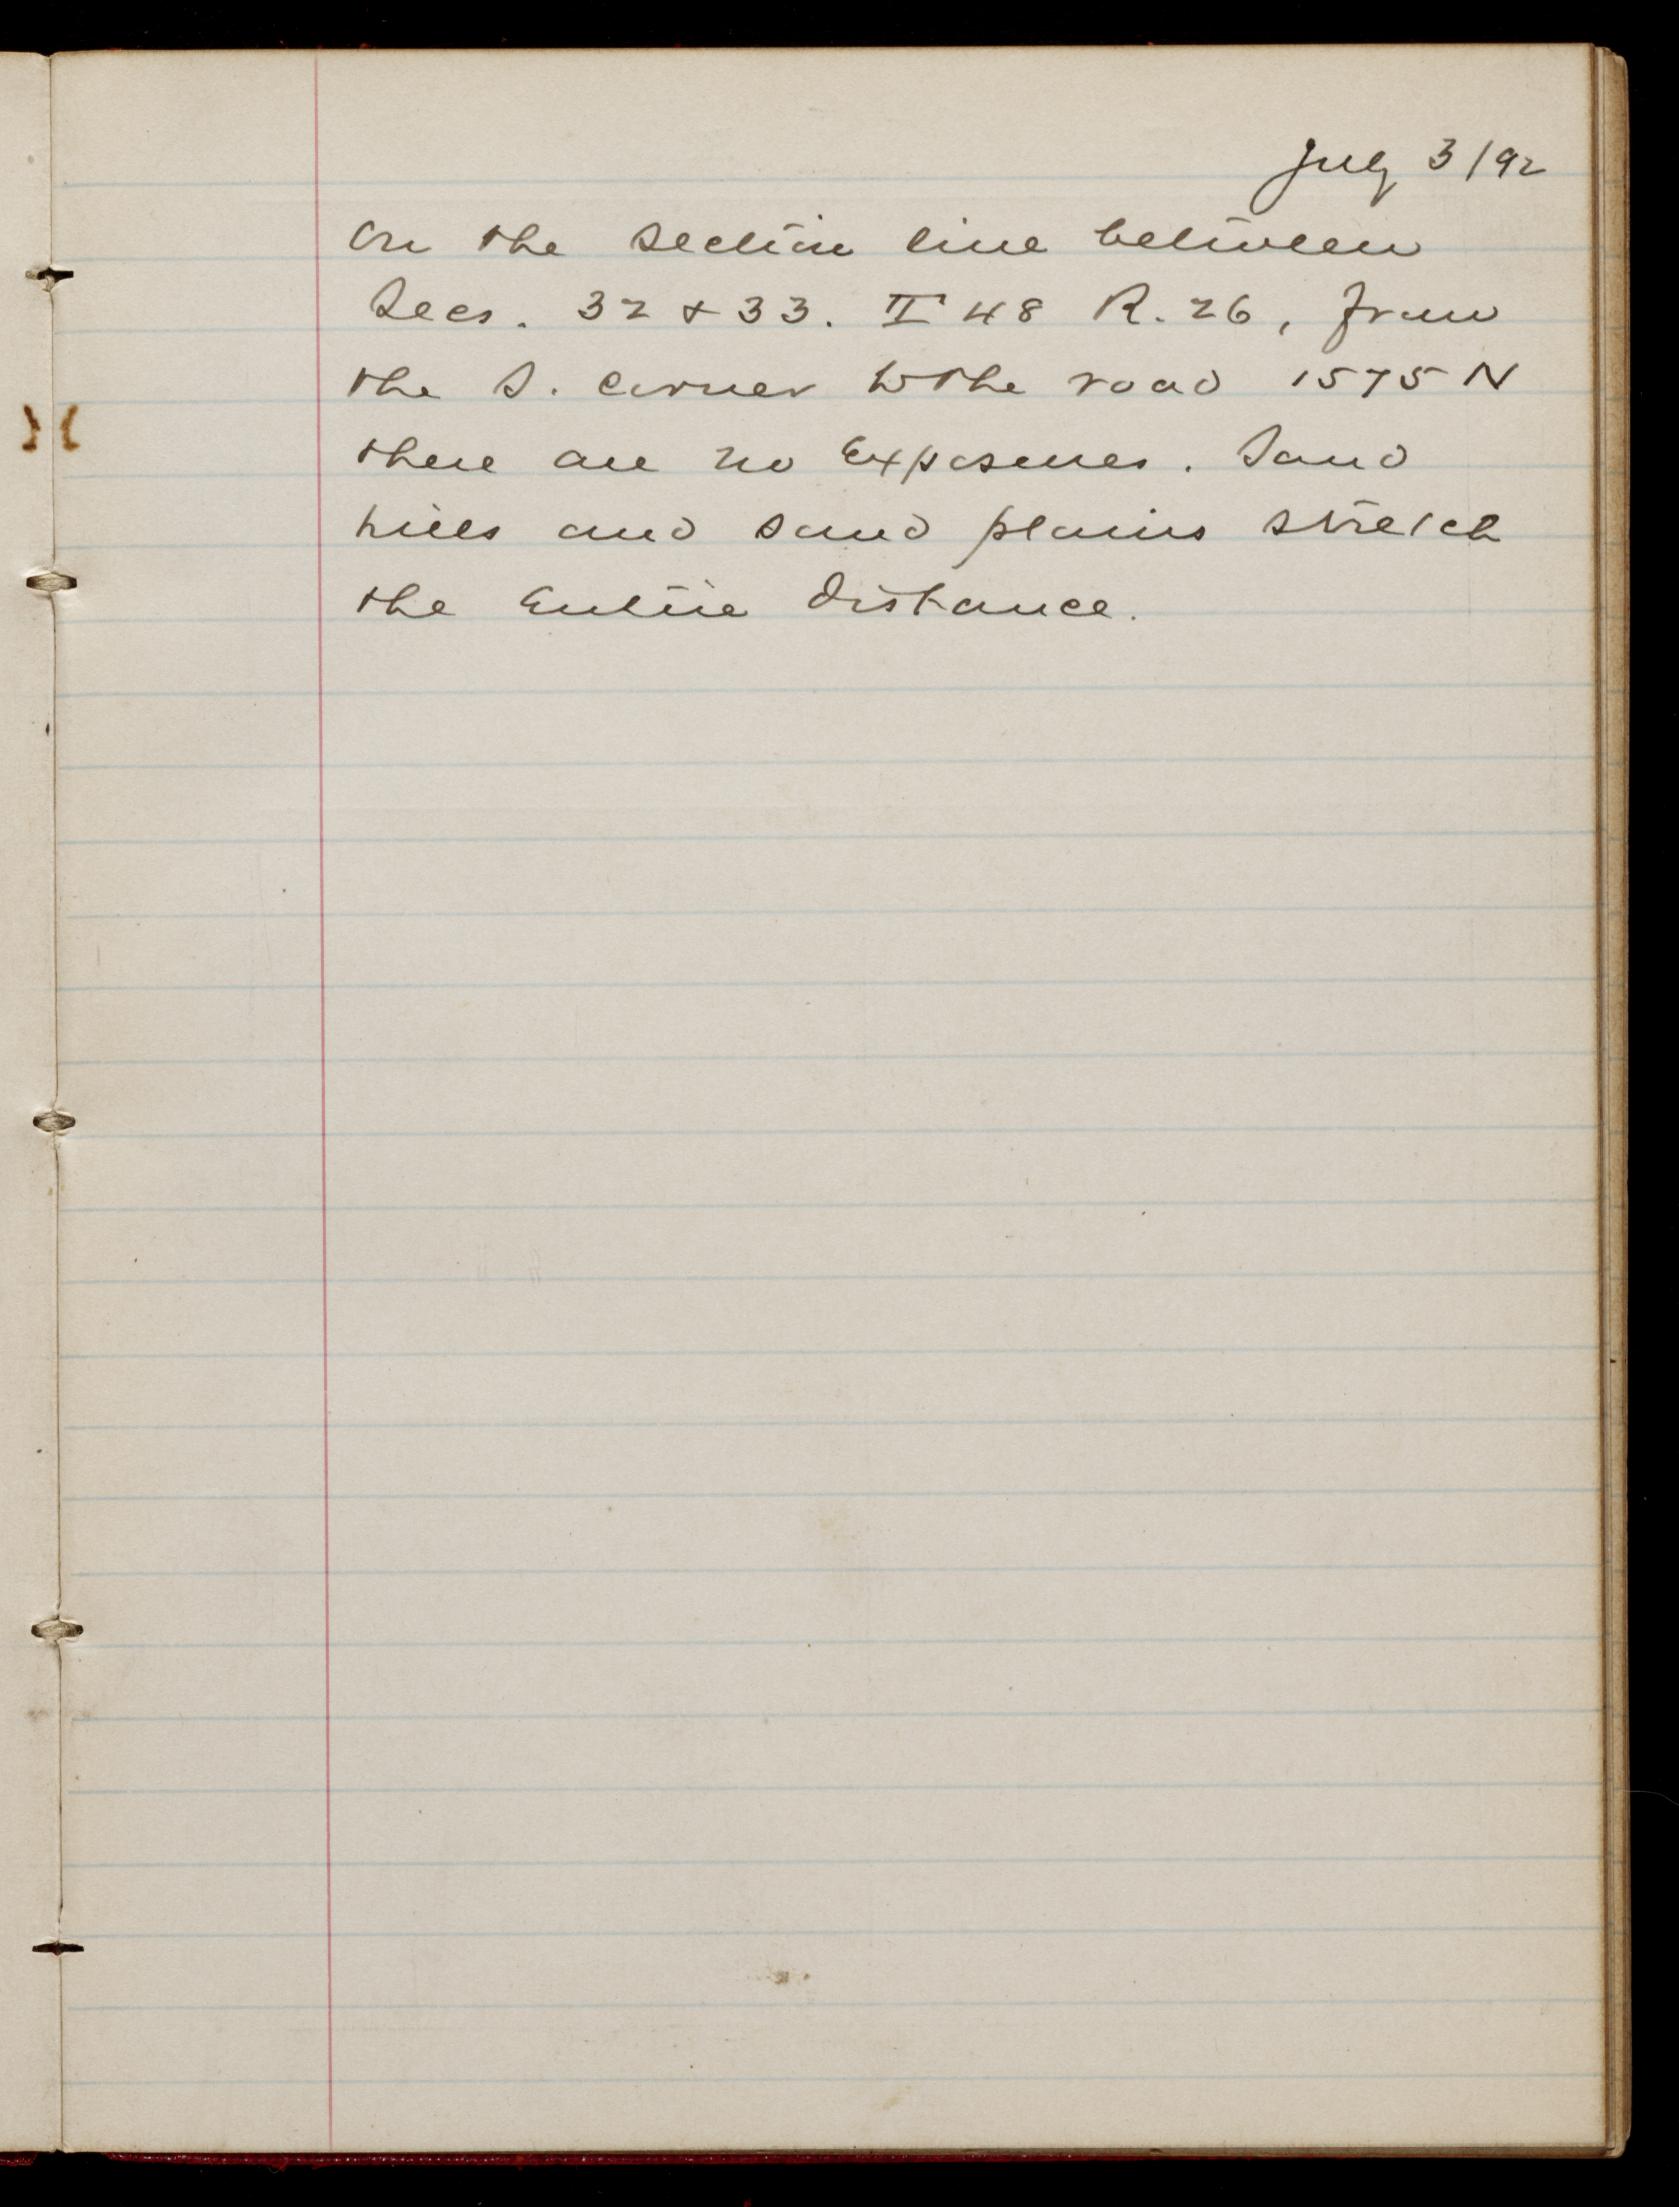 July 3/92
On the section line between
Secs. 32 & 33. T 48 R. 26, from
the S. corner to the road 1575 N
there are no exposures. Sand
hills and sand plains stretch
the entire distance.